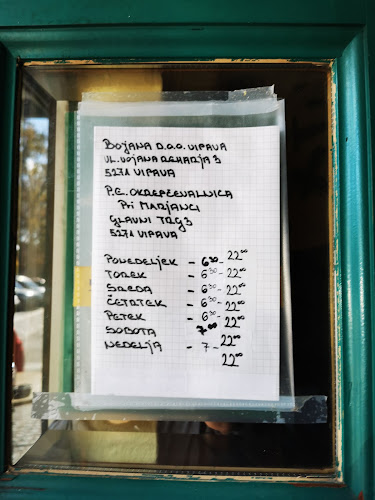 BOJANA D.O.O. VIPAVA
UL. VOJANA REHARJA 3
5271 VIPAVA
P.E. OKREPČEVALNICA
Pri MARJANCI
GLAVNI TRG 3
5271 VIPAVA
PONEDELJEK - 6³⁰ - 22⁰⁰
TOREK - 6³⁰ - 22⁰⁰
SREDA - 6³⁰ - 22⁰⁰
ČETRTEK - 6³⁰ - 22⁰⁰
PETEK - 6³⁰ - 22⁰⁰
SOBOTA 7⁰⁰ - 22⁰⁰
NEDELJA - 7 - 22⁰⁰